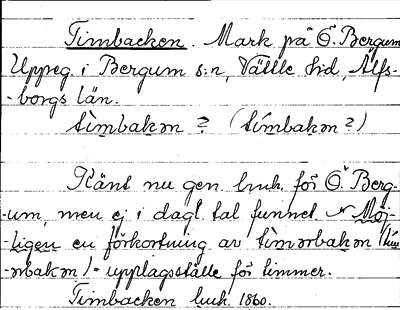 Timbacken. Mark på Ö. Bergum
Uppeg. i Bergum s:n, Vättle hd, Älfs-
-borgs län.
tìmbakən ? (tímbakən ?)
Känt nu gen. bruk. för Ö. Berg-
-um, men ej i dagl. tal funnet. Möj-
-ligen en förkortning av tìmərbakən (tím-
-ərbakən) = upplagsställe för timmer.
Timbacken bruk. 1860.